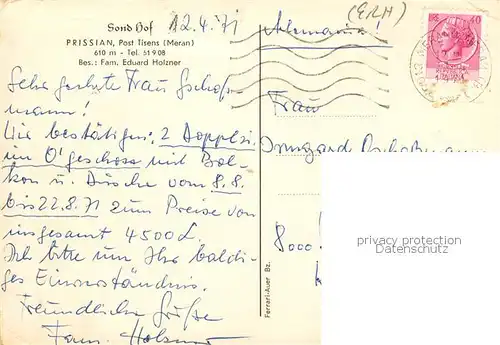 Sond Hof
PRISSIAN, Post Tisens (Meran)
610 m - Tel. 51908
Bes.: Fam. Eduard Holzner
12.4.71
Sehr geehrte Frau
mann!
Wir bestätigen: 2 Doppelzi.
im O'geschoss mit Bal-
kon u. Dusche vom 8.8.
bis 22.8.71 zum Preise von
insgesamt 4500 L.
Ich bitte um Ihr baldi-
ges Einverständnis.
Freundliche Grüße
Fam. Holzner
Ferrari-Auer Bz.
(ERH)
Alemania!
40
Frau
Irmgard
8000
privacy protection
Datenschutz